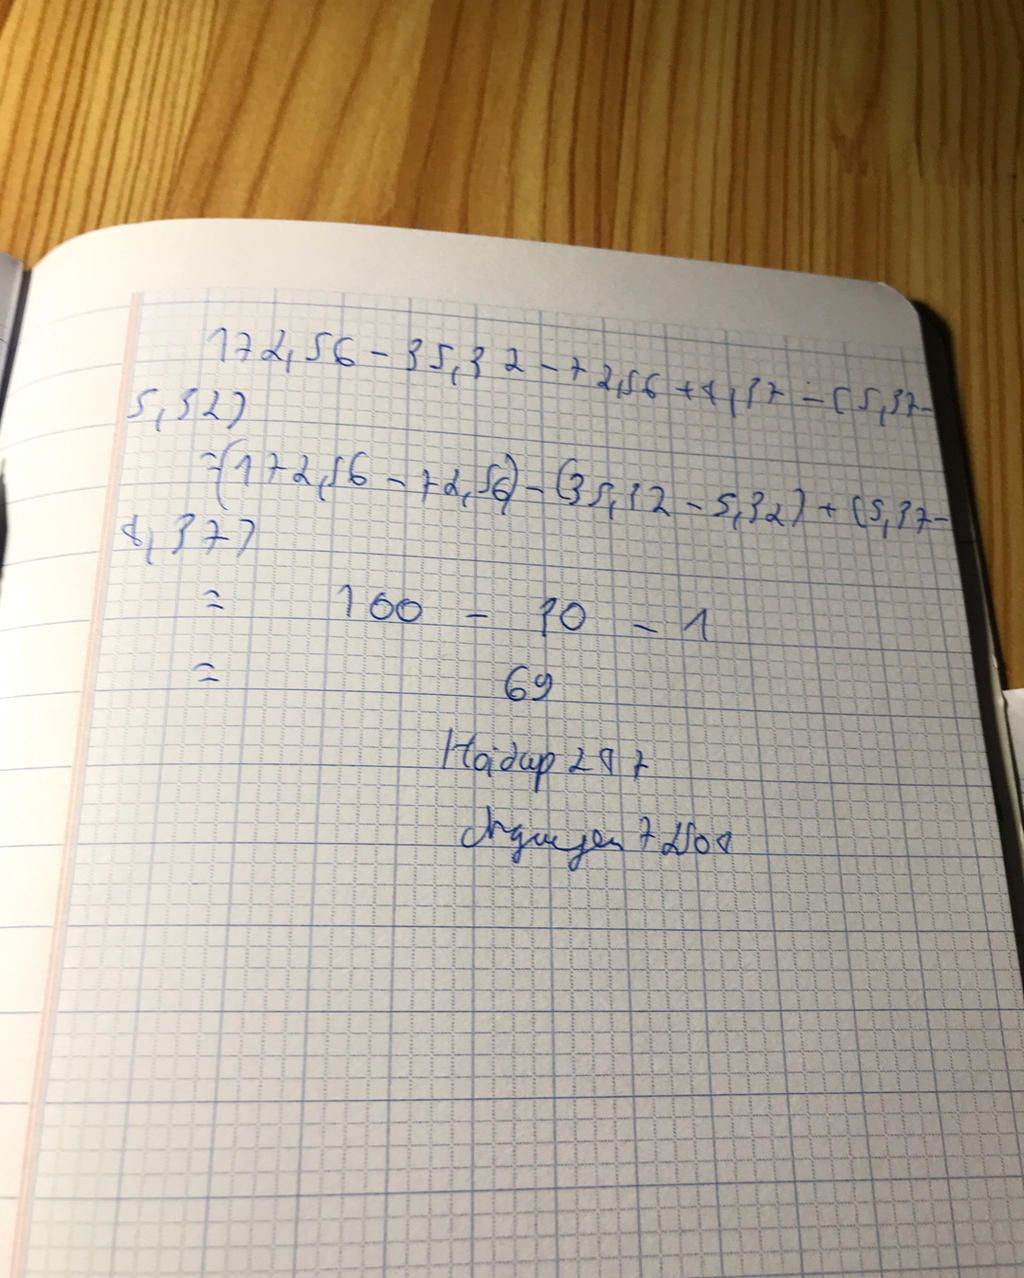 172,56 - 35,32 - 72,56 + 4,37 - (5,37-
5,32)
=(172,56 - 72,56) - (35,32 - 5,32) + (5,37-
4,37)
= 100 - 30 - 1
= 69
Hoidap 247